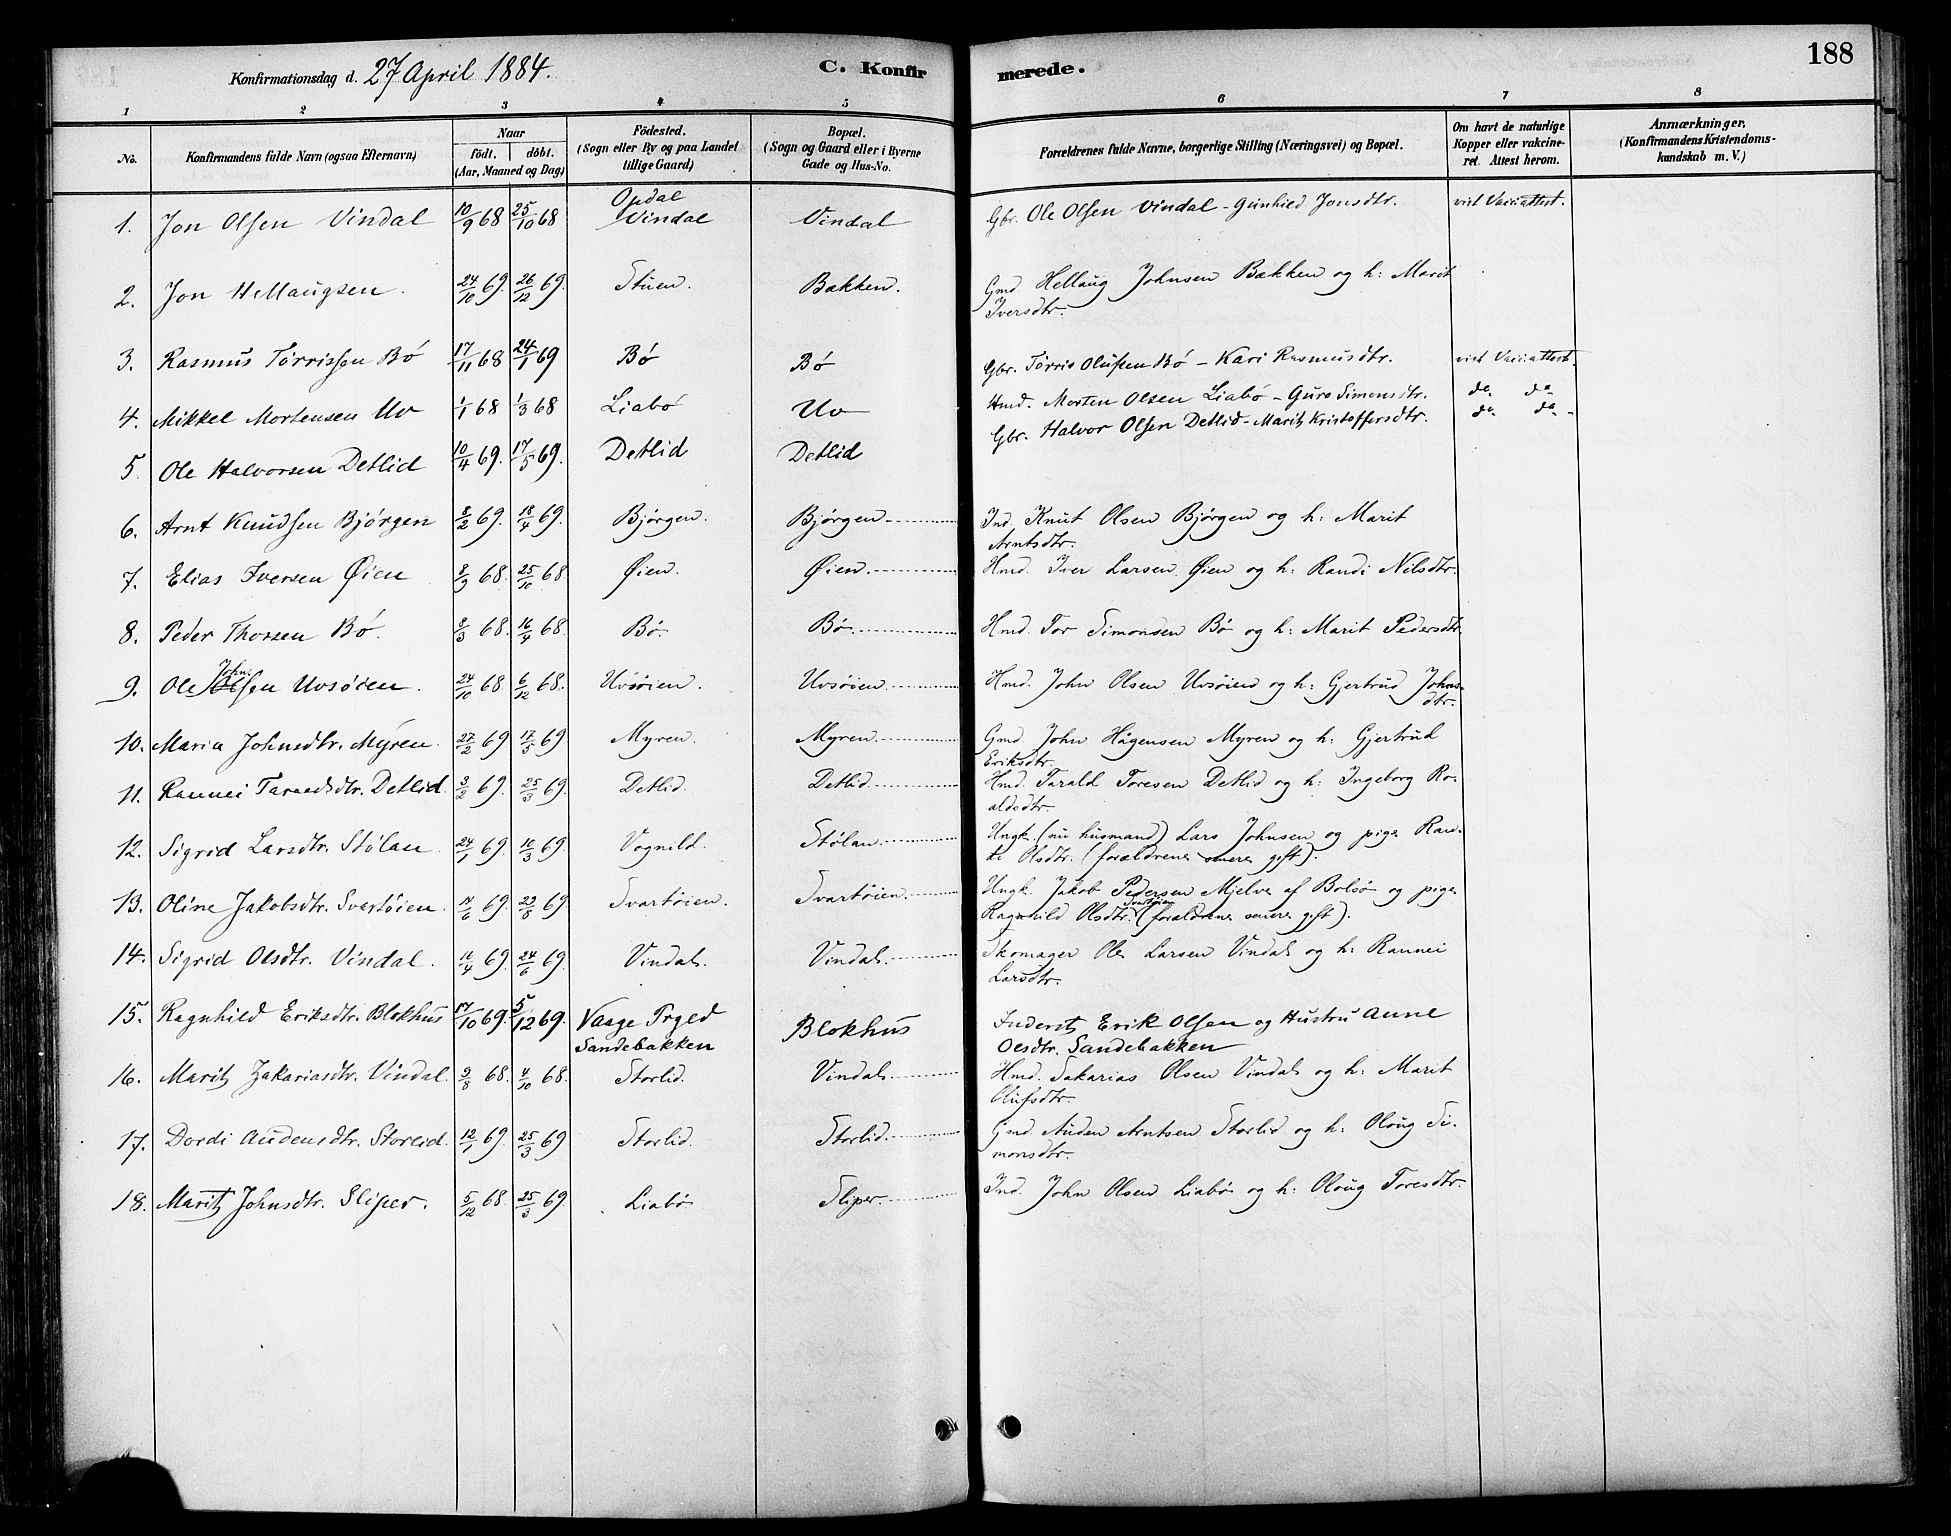 188
Konfirmationsdag d. 27 April 1884.
C. Konfirmerede.
1 2 3 4 5 6 7 8
No.
Konfirmandens fulde Navn (ogsaa Efternavn)
Naar
födt. döbt.
(Aar, Maaned og Dag)
Födested.
(Sogn eller By og paa Landet
tillige Gaard)
Bopæl.
(Sogn og Gaard eller i Byerne
Gade og Hus-No.
Forældrenes fulde Navne, borgerlige Stilling (Næringsvei) og Bopæl.
Om havt de naturlige
Kopper eller vakcine-
ret. Attest herom.
Anmærkninger,
(Konfirmandens Kristendoms-
kundskab m. V.)
Opdal
1. Jon Olsen Vindal 10/9 68 25/10 68 Vindal Vindal Gbr. Ole Olsen Vindal - Gunhild Jonsdtr. vist Vacc.attest.
2. Jon Hellaugsen. 24/10 69. 26/12 69. Stuen. Bakken. Gmd Hellaug Johnsen Bakken og h: Marit
Iversdtr.
3. Rasmus Tørrissen Bó 17/11 68 24/1 69 Bó Bó Gbr. Tørris Olufsen Bó - Kari Rasmusdtr. vist Vacc.attest.
4. Mikkel Mortensen Uv 1/1 68 1/3 68 Liabó Uv Hmd. Morten Olsen Liabó - Guro Simonsdtr. do. do.
5. Ole Halvorsen Detlid 10/4 69. 17/5 69. Detlid Detlid Gbr. Halvor Olsen Detlid - Marit Kristoffersdtr. do. do.
6. Arnt Knudsen Bjórgen 8/2 69. 18/4 69. Bjórgen. Bjórgen Ind. Knut Olsen Bjórgen og h: Marit
Arntsdtr.
7. Elias Iversen Øien 8/9 68. 25/10 68 Øien. Øien. Hmd. Iver Larsen Øien og h: Randi Nilsdtr.
8. Peder Thorsen Bó. 8/3 68. 16/4 68. Bó. Bó. Hmd. Tor Simonsen Bó og h: Marit Pedersdtr.
9. Ole Johnsen Uvsóien. 24/10 68. 6/12 68. Uvsóien. Uvsóien Hmd. John Olsen Uvsóien og h: Gjertrud Johns-
dtr.
10. Maria Johnsdtr. Myren. 27/2 69 17/5 69 Myren. Myren. Gmd John Hågensen Myren og h: Gjertrud
Eriksdtr.
11. Rannei Taraldsdtr. Detlid. 3/2 69. 25/3 69. Detlid. Detlid. Hmd. Tarald Toresen Detlid og h: Ingeborg Ro-
aldsdtr.
12. Sigrid Larsdtr. Stólan. 24/1 69. 10/3 69. Vognild. Stólan. Ungk. (nu husmand) Lars Johnsen og pige Ran-
di Olsdtr. (forældrene senere gift).
13. Oline Jakobsdtr. Svartóien. 11/6 69. 23/8 69. Svartóien. Svartóien. Ungk. Jakob Pedersen Mjelve af Bolsó og pige
Ragnhild Olsdtr. Svartóien (forældrene senere gift).
14. Sigrid Olsdtr. Vindal. 16/4 69. 24/6 69. Vindal. Vindal. Skomager Ole Larsen Vindal og h: Rannei
Larsdtr.
15. Ragnhild Eriksdtr. Blokhus 17/10 69. 5/12 69. Vaage Prgld Blokhus Inderst Erik Olsen og Hustru Anne
Sandebakken Olsdtr. Sandebakken
16. Marit Zakariasdtr. Vindal. 9/8 68. 4/10 68. Storlid. Vindal. Hmd. Sakarias Olsen Vindal og h: Marit
Olufsdtr.
17. Dordi Audensdtr. Storlid 12/1 69. 25/3 69 Storlid. Storlid. Gmd. Auden Arntsen Storlid og h: Oloug Si-
monsdtr.
18. Marit Johnsdtr. Sliper. 5/12 68. 25/3 69. Liabó Sliper. Ind. John Olsen Liabó og h: Oloug Toresdtr.